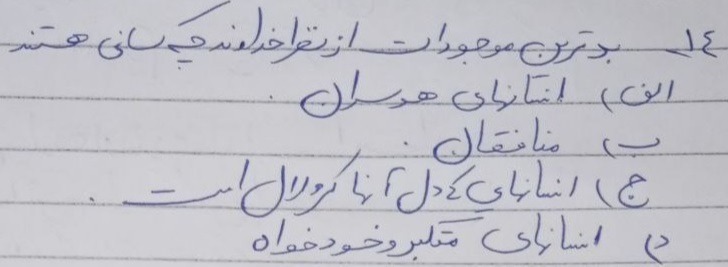 ۱٤_ بدترین موجودات از نظر خداوند چه کسانی هستند
الف) انسانهای هوسران.
ب) منافقان.
ج) انسانهایی که دل آنها کر و لال است.
د) انسانهای متکبر و خودخواه